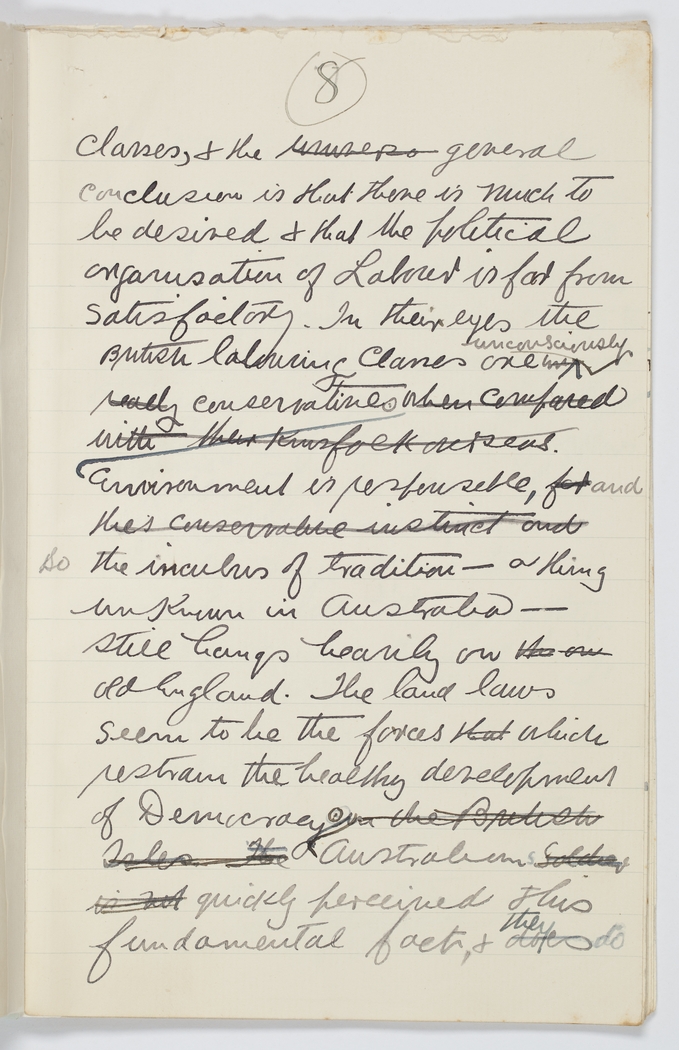 8
classes, & the universa general
conclusion is that there is much to
be desired & that the political
organisation of Labour is far from
satisfactory. In their eyes the
unconsciously
British labouring classes are
really conservatives when compared
with their kinsfolk overseas.
Environment is responsible, for and
the conservative instinct and
so the incubus of tradition — a thing
unknown in Australia —
still hangs heavily on the on
old England. The land laws
seem to be the forces that which
restrain the healthy development
of Democracy in the British
Isles. The Australians Soldier
is not quickly perceived this
they
fundamental fact, & does do